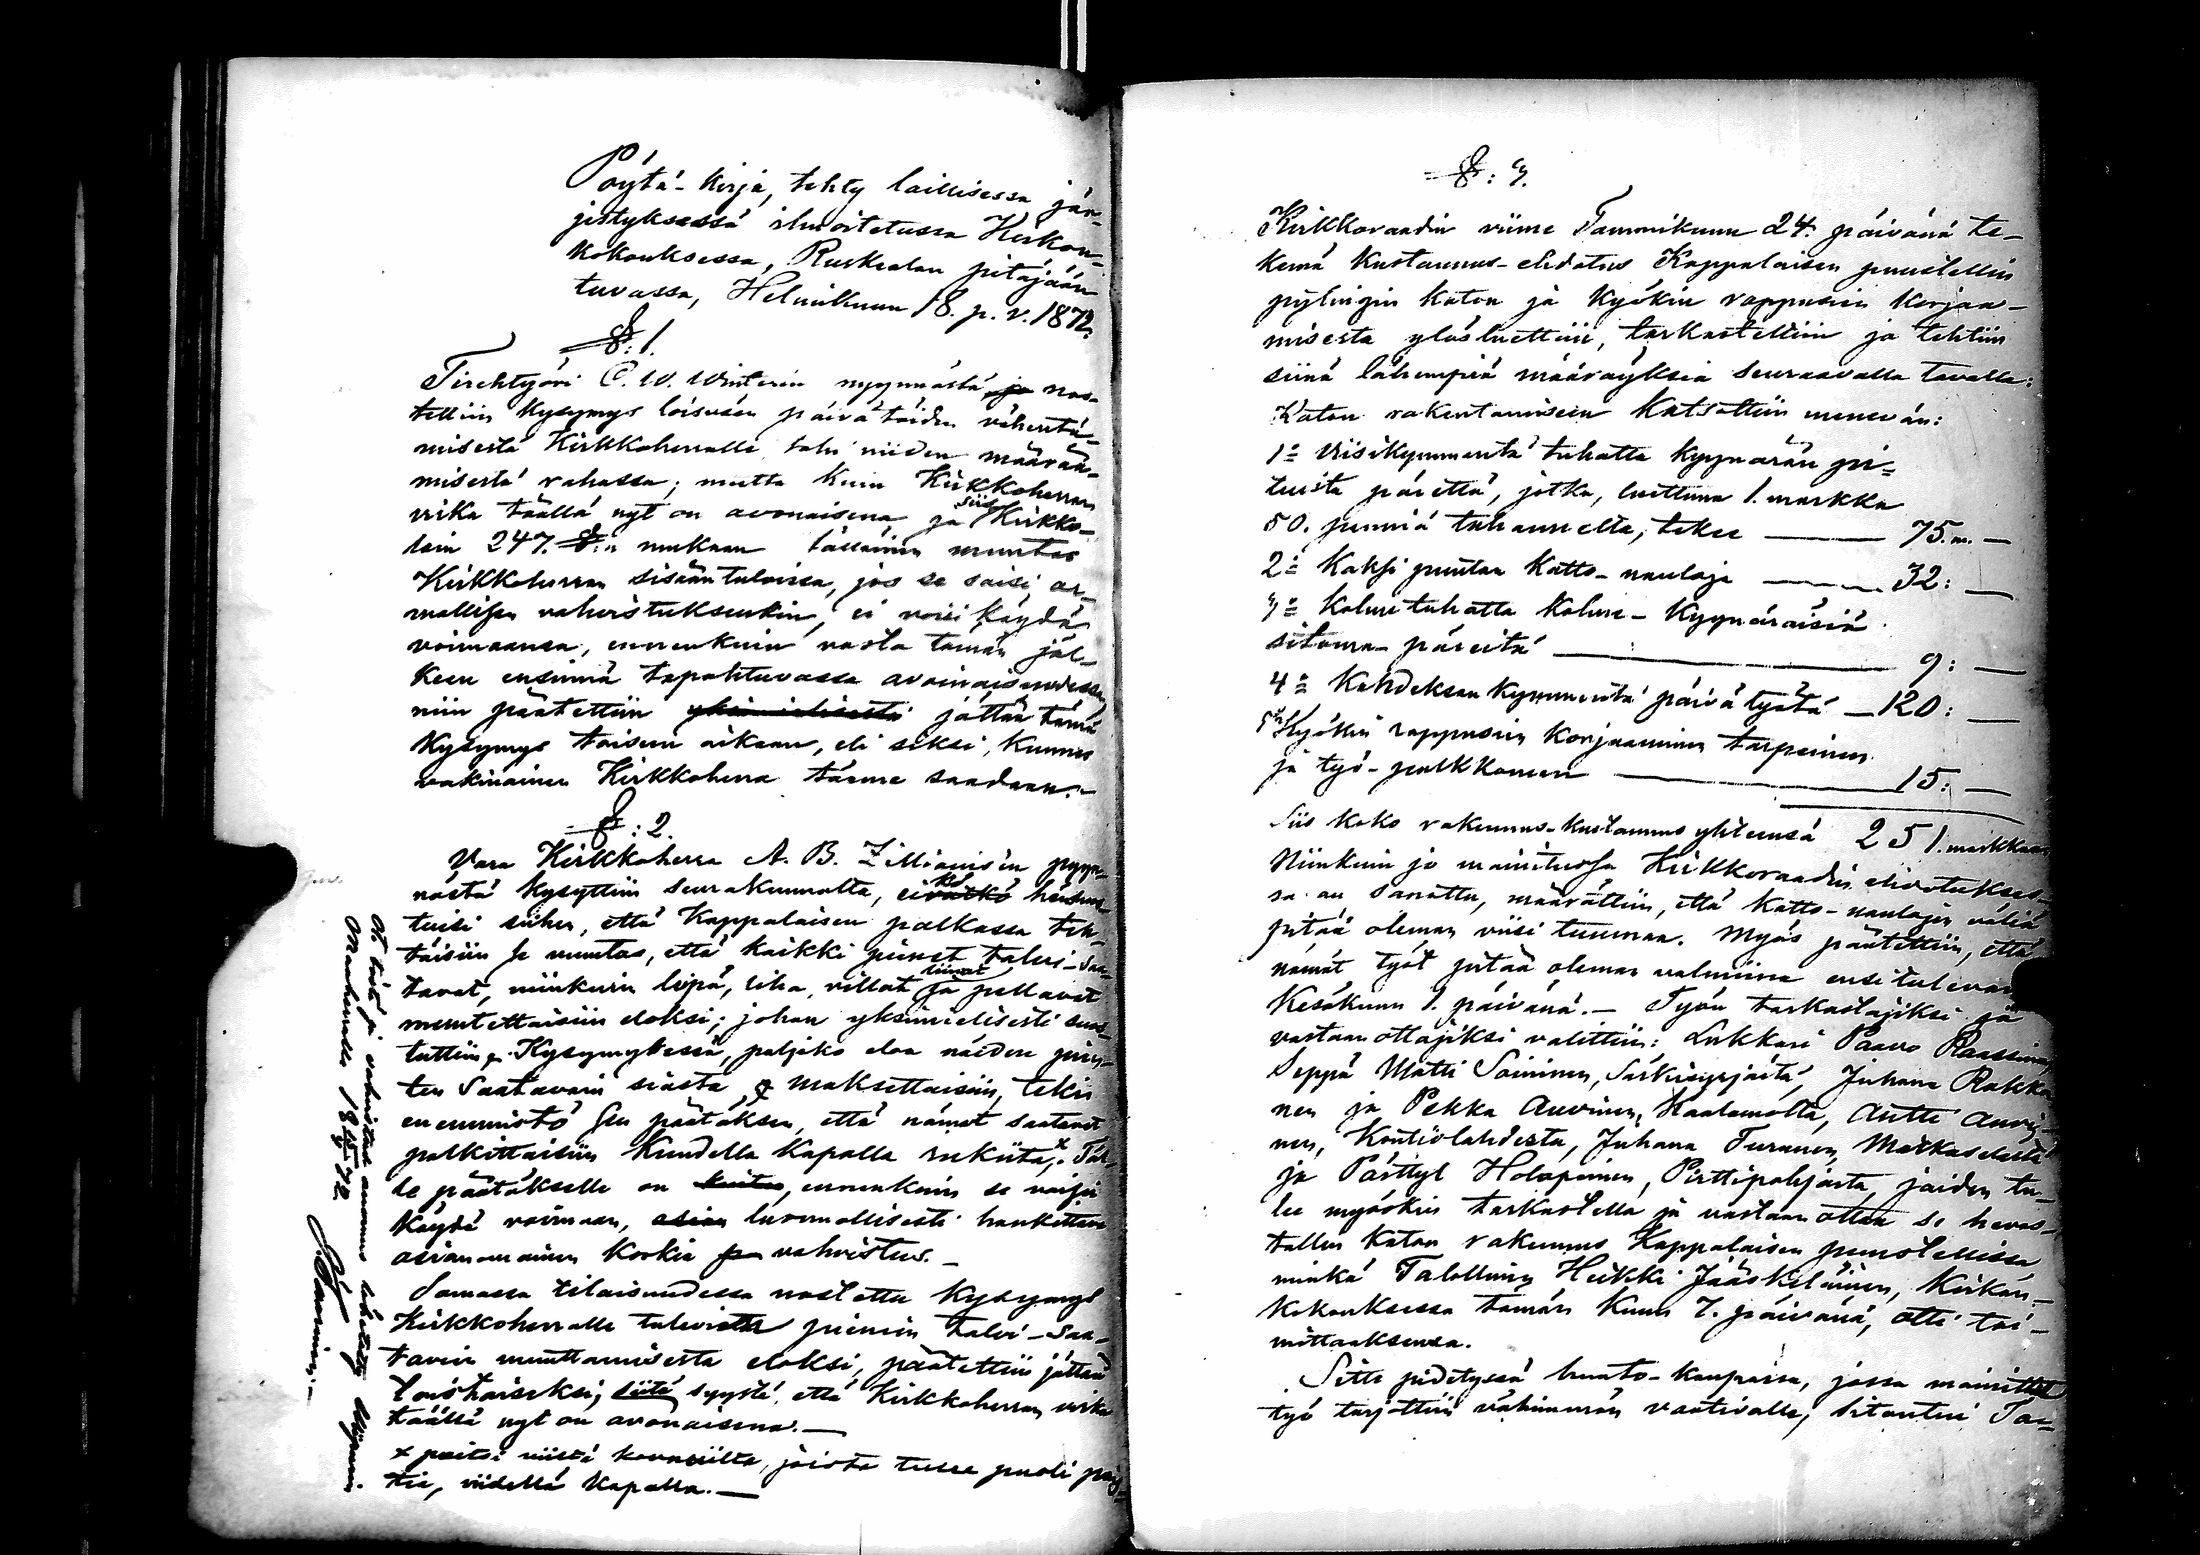 Pöytä-kirja, tehty laillisessa jär-
jestyksessä ilmoitetussa Kirkon-
kokouksessa, Ruskealan pitäjään
tuvassa, Helmikuun 18. p. v. 1872.
§: 1.
Tirehtyöri C. W. Winterin pyynnöstä ja nos-
tettiin kysymys loisväen päivätöiden vähentä-
misestä Kirkkoherralle tahi niiden määrää-
misestä rahassa; mutta kuin Kirkkoherran
virka täällä nyt on avonaisena ja siis Kirkko-
lain 247. §:n mukaan tällainen muutos
Kirkkoherran sisääntuloissa, jos se saisi ar-
mollisen vahvistuksenkin, ei voisi käydä
voimaansa, ennenkuin vasta tämän jäl-
keen ensinnä tapahtuvassa avoinaisuudessa,
niin päätettiin yksimielisesti jättää tämä
kysymys toiseen aikaan, eli siksi, kunnes
vakinainen Kirkkoherra tänne saadaan.-
§: 2.
Vara Kirkkoherra A. B. Zilliauksen pyyn-
nöstä kysyttiin seurakunnalta, eivätkö
tuisi siihen, että Kappalaisen palkassa teh-
täisiin se muutos, että kaikki pienet talvi-saa-
tavat, niinkuin leipä, liha, villat liinat ja pellavat
muutettaisiin eloksi; johon yksimielisesti suos-
tuttiin. Kysymyksessä, paljoko eloa näiden pien-
ten saatavain siasta maksettaisiin, teki
enemmistö sen päätöksen, että nämät saatavat
palkittaisiin kuudella kapalla rukiita, x. Täl-
le päätökselle on ennenkuin se voisi
käydä voimaan, luvallisesti hankittava
asianomainen Korkia vahvistus.-
Samassa tilaisuudessa nostettu kysymys
Kirkkoherralle tulevien pienien talvi-saa-
tavien muuttamisesta eloksi, päätettiin jättää
toistaiseksi, siitä syystä, että Kirkkoherran virka
täällä nyt on avonaisena.-
x paitsi niistä kovasilta, joista tulee puoli
tia, viidellä kapalla.-
§: 3.
Kirkkoraadin viime Tammikuun 24. päivänä te-
kemä kustannus-ehdotus Kappalaisen puustellin
pytingin katon ja kyökin rappusien korjaa-
misesta ylösluettiin, tarkastettiin ja tehtiin
siinä lähempiä määräyksiä seuraavalla tavalla:
Katon rakentamiseen katsottiin menevän:
1o Viisikymmentä tuhatta kyynärän pi-
tuista pärettä, jotka, luettuna 1. markka
50. penniä tuhannelta, tekee — 75. m. —
2o Kaksi puutaa katto-nauloja — 32: —
3o Kolmetuhatta kolme-kyynäräisiä
sitoma-päreitä — 9: —
4o Kahdeksankymmentä päivätyötä — 120: —
5o Kyökin rappusien korjaaminen tarpeinen
ja työ-palkkoineen — 15: —
Siis koko rakennus-kustannus yhteensä 251. markkaa
Niinkuin jo mainitussa Kirkkoraadin ehdotukses-
sa on sanottu, määrättiin, että katto-naulojen väliä
pitää oleman viisi tuumaa. Myös päätettiin, että
nämät työt pitää oleman valmiina ensitulevan
Kesäkuun 1. päivänä.- Työn tarkastajiksi ja
vastaanottajiksi valittiin: Lukkari Paavo Raassina,
Seppä Matti Soininen, Särkisyrjästä, Juhana Rakko-
nen ja Pekka Auvinen, Kaalamolta, Antti Auvi-
nen, Kontiolahdesta, Juhana Turunen, Matkaselästä
ja Pärttyl Holopainen, Pirttipohjasta, joiden tu-
lee myöskin tarkastella ja vastaan ottaa se
tallin katon rakennus Kappalaisen puustellissa
minkä Talollinen Heikki Jääskeläinen, Kirkon-
kokouksessa tämän kuun 7. päivänä, otti toi-
mittaaksensa.
Sitte pidetyssä huuto-kaupassa, jossa mainittu
työ tarjottiin vähimmän vaativalle, sitoutui Ta-